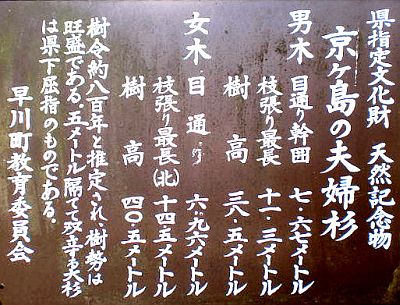 県指定文化財　天然記念物
京ヶ島の夫婦杉
男木　目通り幹囲　七・六七メートル
枝張り最長　十一・三メートル
樹高　三八・五メートル
女木　目通り　六・九六メートル
枝張り最長(北)　十四・五メートル
樹高　四〇・五メートル
樹令約八百年と推定され、樹勢は
旺盛である。五メートル隔てて双立する夫杉
は県下屈指のものである。
早川町教育委員会